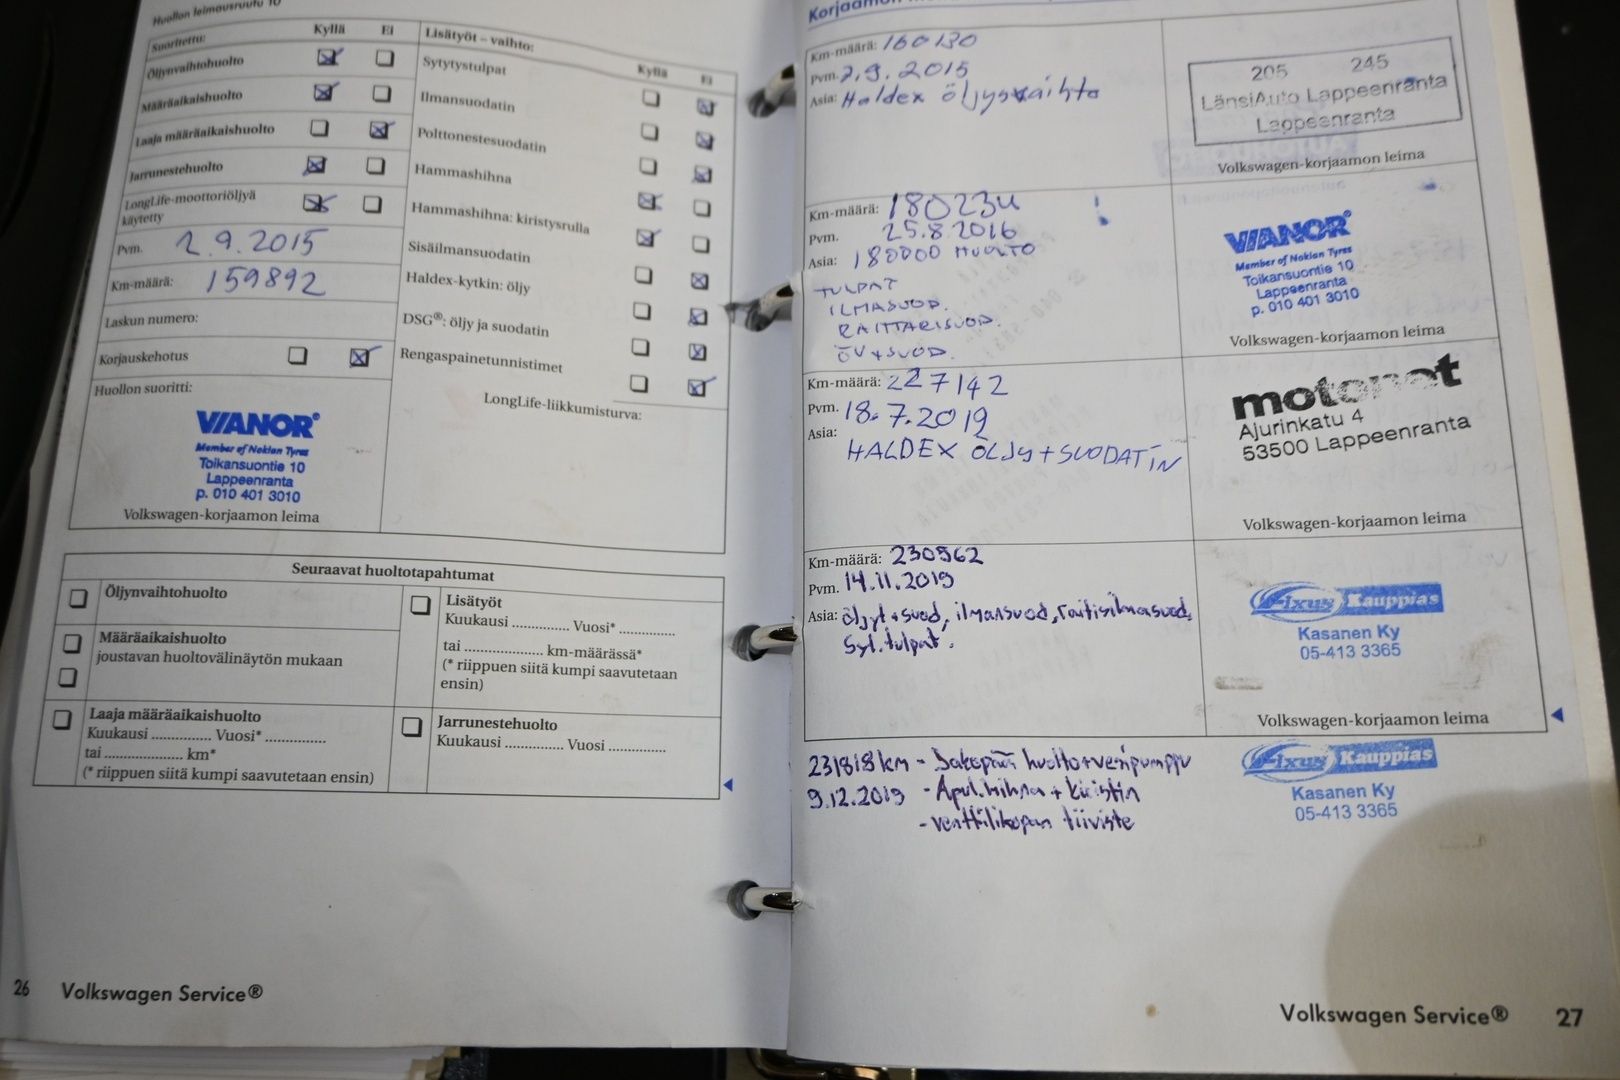 Huollon leimausruutu 10
Suoritettu: Kyllä Ei
Öljynvaihtohuolto
Määräaikaishuolto
Laaja määräaikaishuolto
Jarrunestehuolto
LongLife-moottoriöljyä
käytetty
Pvm. 2.9.2015
Km-määrä: 159892
Laskun numero:
Korjauskehotus
Huollon suoritti:
VIANOR®
Member of Nokian Tyres
Toikansuontie 10
Lappeenranta
p. 010 401 3010
Volkswagen-korjaamon leima
Lisätyöt – vaihto:
Kyllä Ei
Sytytystulpat
Ilmansuodatin
Polttonestesuodatin
Hammashihna
Hammashihna: kiristysrulla
Sisäilmansuodatin
Haldex-kytkin: öljy
DSG®: öljy ja suodatin
Rengaspainetunnistimet
LongLife-liikkumisturva:
Seuraavat huoltotapahtumat
Öljynvaihtohuolto
Määräaikaishuolto
joustavan huoltovälinäytön mukaan
Laaja määräaikaishuolto
Kuukausi ............... Vuosi* ...............
tai .................... km*
(* riippuen siitä kumpi saavutetaan ensin)
Lisätyöt
Kuukausi .............. Vuosi* ..............
tai .................... km-määrässä*
(* riippuen siitä kumpi saavutetaan
ensin)
Jarrunestehuolto
Kuukausi ............... Vuosi ...............
26 Volkswagen Service®
Korjaamon
Km-määrä: 160130
Pvm. 2.9.2015
Asia: Haldex öljysvaihto
205 245
LänsiAuto Lappeenranta
Lappeenranta
Volkswagen-korjaamon leima
Km-määrä: 180234
Pvm. 25.8.2016
Asia: 180000 HUOLTO
TULPAT
ILMASUOD.
RAITTARISUOD.
ÖV+SUOD.
VIANOR®
Member of Nokian Tyres
Toikansuontie 10
Lappeenranta
p. 010 401 3010
Volkswagen-korjaamon leima
Km-määrä: 227142
Pvm. 18.7.2019
Asia:
HALDEX ÖLJY+SUODATIN
motonet
Ajurinkatu 4
53500 Lappeenranta
Volkswagen-korjaamon leima
Km-määrä: 230562
Pvm. 14.11.2019
Asia: öljyt+suod, ilmansuod, raitisilmasuod,
Syt.tulpat.
Fixus Kauppias
Kasanen Ky
05-413 3365
Volkswagen-korjaamon leima
231818km - Jakopään huolto+vesipumppu
9.12.2019 - Apul.hihna + kiristin
- venttiilikopan tiiviste
Fixus Kauppias
Kasanen Ky
05-413 3365
Volkswagen Service® 27